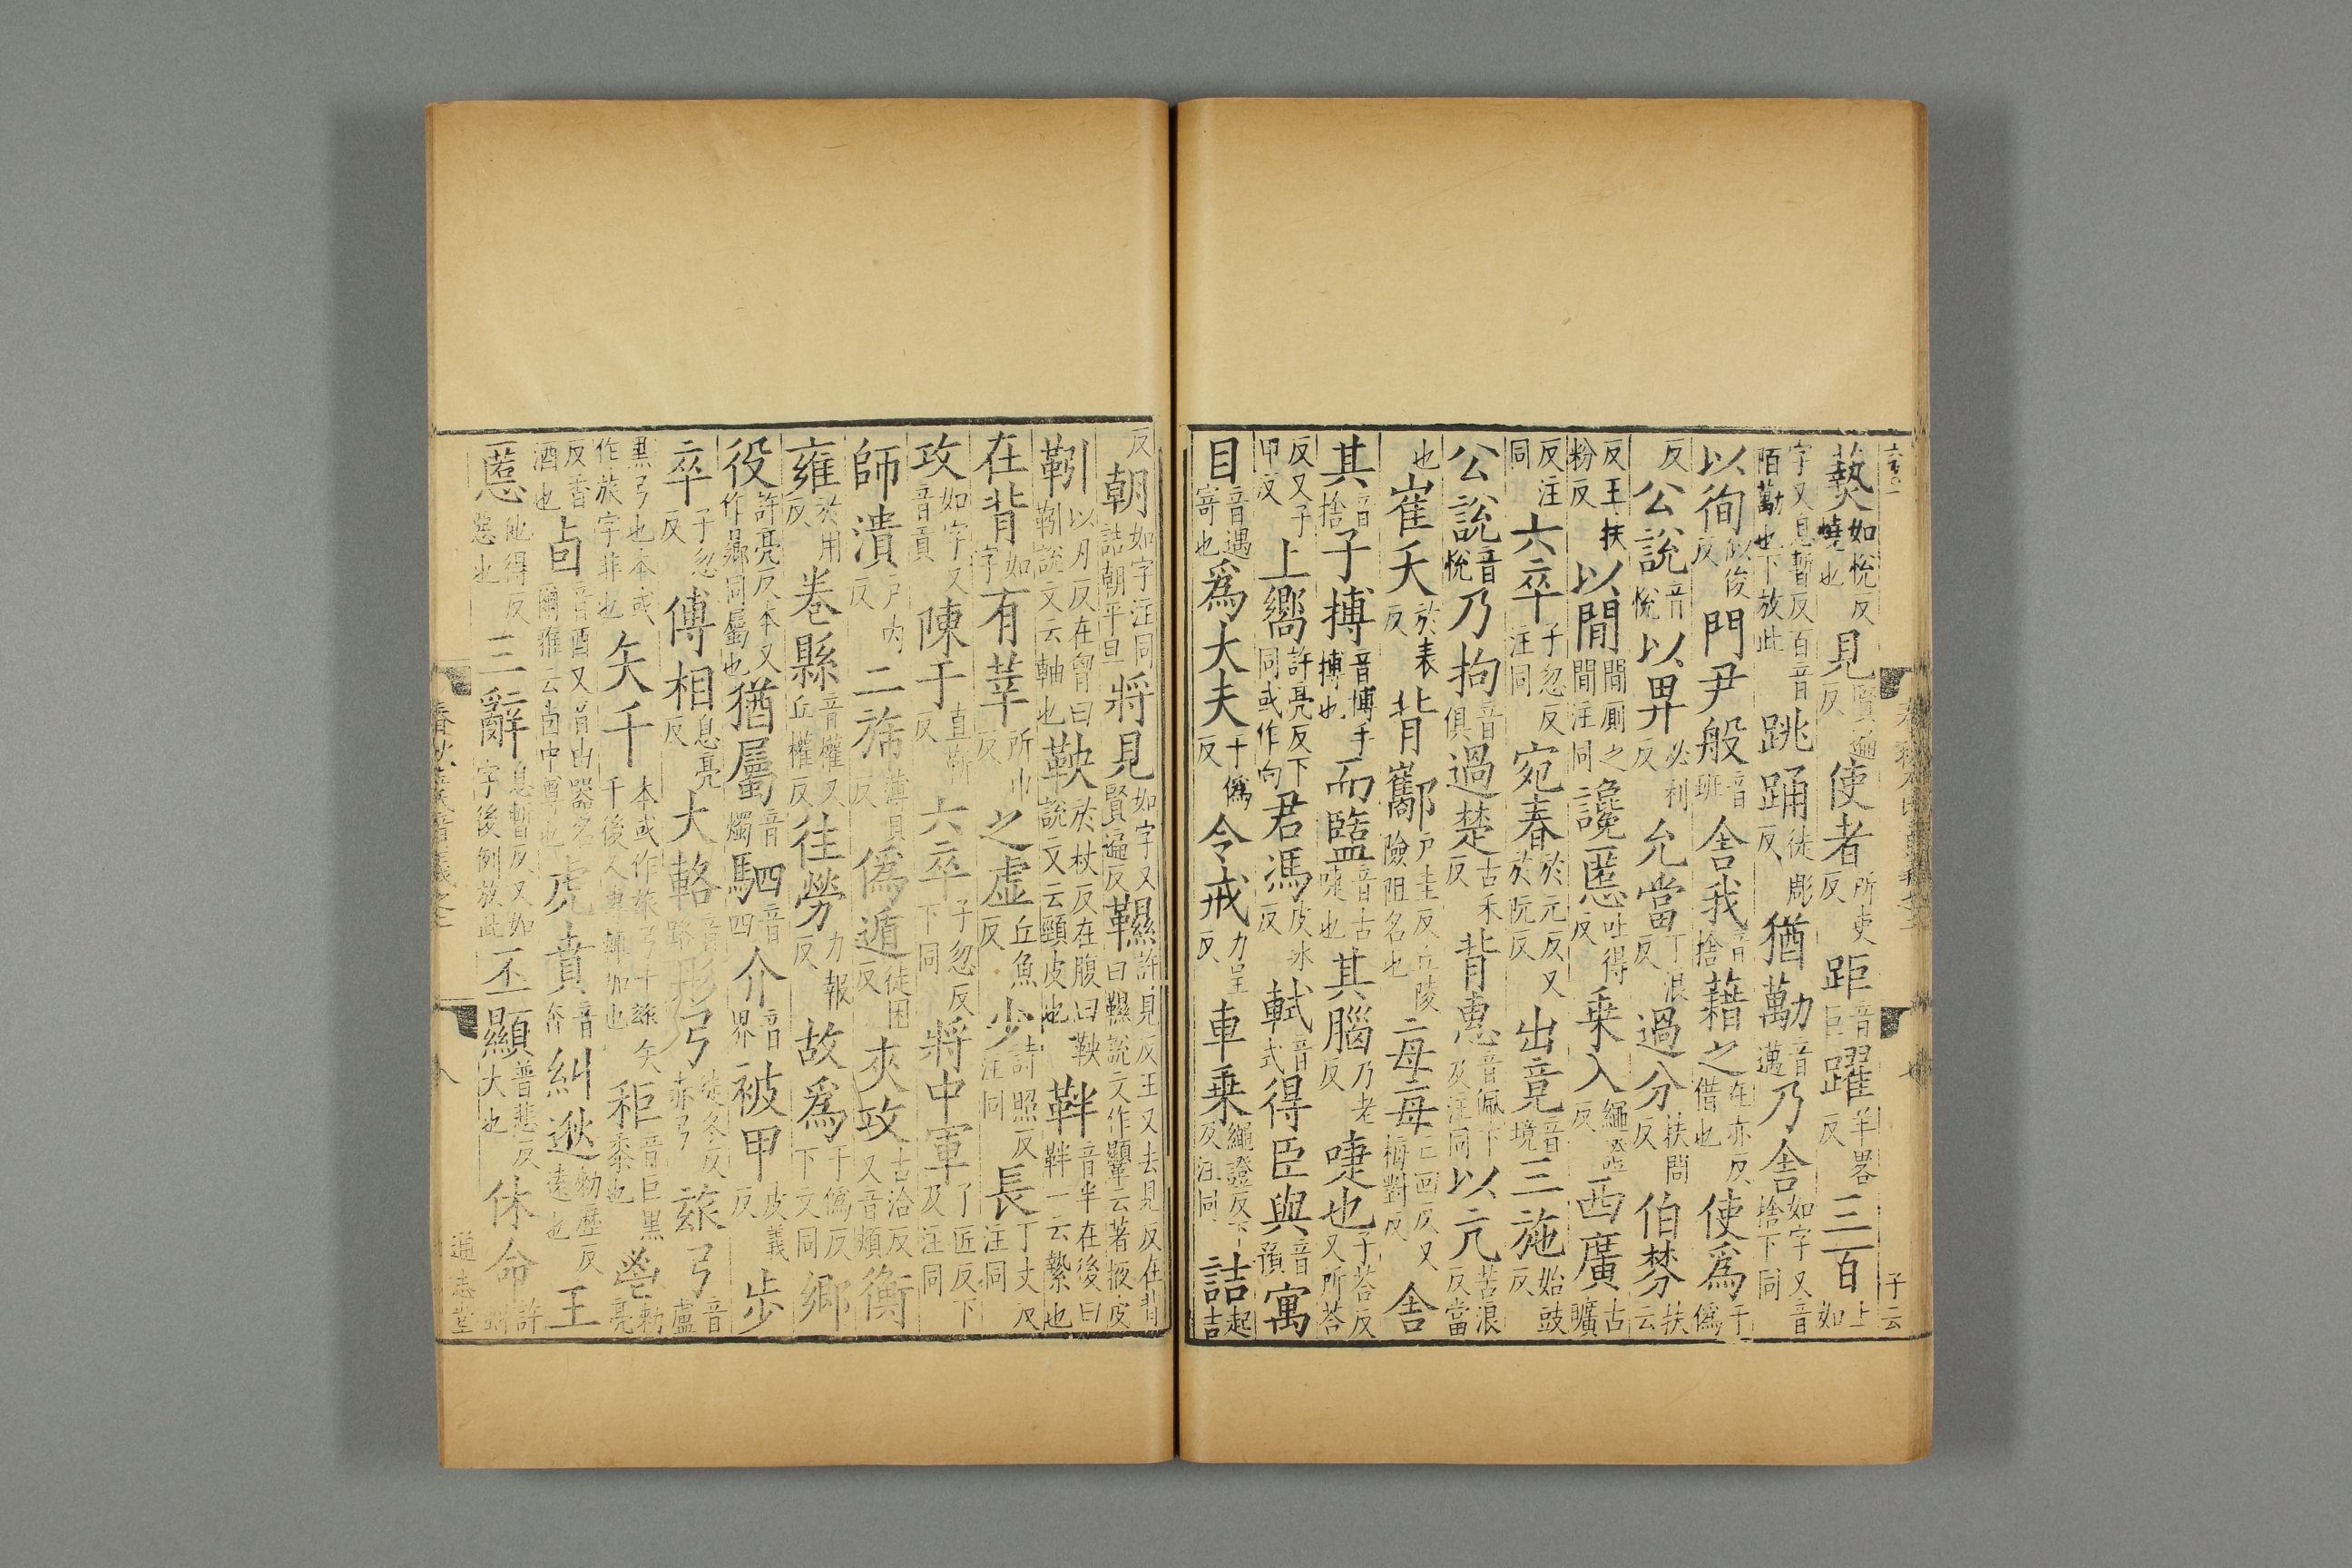 爇如悅反燒也見賢遍反使者所吏反距音巨躍羊畧反三百上如
字又息暫反百音陌勱也下放此跳踊徒彫反猶勱音邁乃舍如字又音捨下同
以徇似俊反門尹般音班舍我音捨藉之在亦反借也使爲于僞
反公說音悅以畀必利反允當丁浪反過分扶問反伯棼扶云
反王扶粉反以間間厠之間注同讒慝吐得反乗入繩證反西廣古曠
反注同六卒子忽反注同宛春於元反又於阮反出竟音境三施始豉反
公說音悅乃拘音俱過楚古禾反背惠音佩下及注同以亢苦浪反當
也崔夭於表反背酅戶圭反丘陵險阻名也每每亡回反又梅對反舍
其音捨子搏音博手搏也而盬音古啑也其腦乃老反啑也子荅反又所荅
反又子甲反上嚮許亮反下同或作向君馮皮冰反軾音式得臣與音預寓
目音遇寄也爲大夫于僞反令戒力呈反車乗繩證反下及注同詰起吉
反朝如字注同詰朝平旦將見如字又賢遍反韅許見反王又去見反在背曰韅說文作顯䩠云著掖皮
靷以刃反在胷曰靷說文云軸也鞅於杖反在腹曰鞅說文云頸皮也靽音半在後曰靽一云縶也
在背如字有莘所巾反之虚丘魚反少詩照反注同長丁丈反注同
攻如字又音貢陳于直覲反六卒子忽反下同將中軍子匠反下及注同
師潰戶内反二旆薄貝反僞遁徒困反夾攻古洽反又音頰衡
雍於用反卷縣音權又丘權反往勞力報反故爲于僞反下文同鄉
役許亮反本又作嚮同屬也猶屬音燭駟音四介音界被甲皮義反步
卒子忽反傅相息亮反大輅音路彤弓徒冬反赤弓玈弓音盧
黑弓也本或作旅字非也矢千本或作玈弓十玈矢千後人專輒加也秬音巨黑黍也鬯勑亮
反香酒也卣音酉又音由器名爾雅云卣中尊也虎賁音奔糾逖勑歷反遠也王
慝他得反惡也三辭息暫反又如字後例放此丕顯普悲反大也休命許虯
通志堂